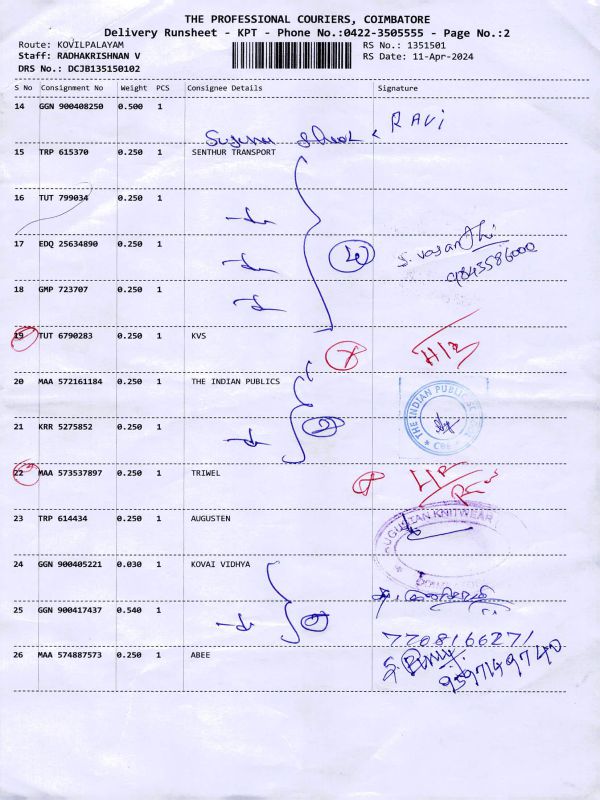 THE PROFESSIONAL COURIERS, COIMBATORE
Delivery Runsheet - KPT - Phone No.:0422-3505555 - Page No.:2
Route: KOVILPALAYAM RS No.: 1351501
Staff: RADHAKRISHNAN V RS Date: 11-Apr-2024
DRS No.: DCJB135150102
S No Consignment No Weight PCS Consignee Details Signature
14 GGN 900408250 0.500 1
RAVI
15 TRP 615370 0.250 1 SENTHUR TRANSPORT
16 TUT 799034 0.250 1
17 EDQ 25634890 0.250 1
4
S. Vasanthi
9843586000
18 GMP 723707 0.250 1
19 TUT 6790283 0.250 1 KVS
20 MAA 572161184 0.250 1 THE INDIAN PUBLICS
THE INDIAN PUBLIC
CBE
21 KRR 5275852 0.250 1
2
22 MAA 573537897 0.250 1 TRIWEL
23 TRP 614434 0.250 1 AUGUSTEN
AUGUSTAN KNITWEAR
24 GGN 900405221 0.030 1 KOVAI VIDHYA
25 GGN 900417437 0.540 1
2
7708166271
26 MAA 574887573 0.250 1 ABEE
9597149740